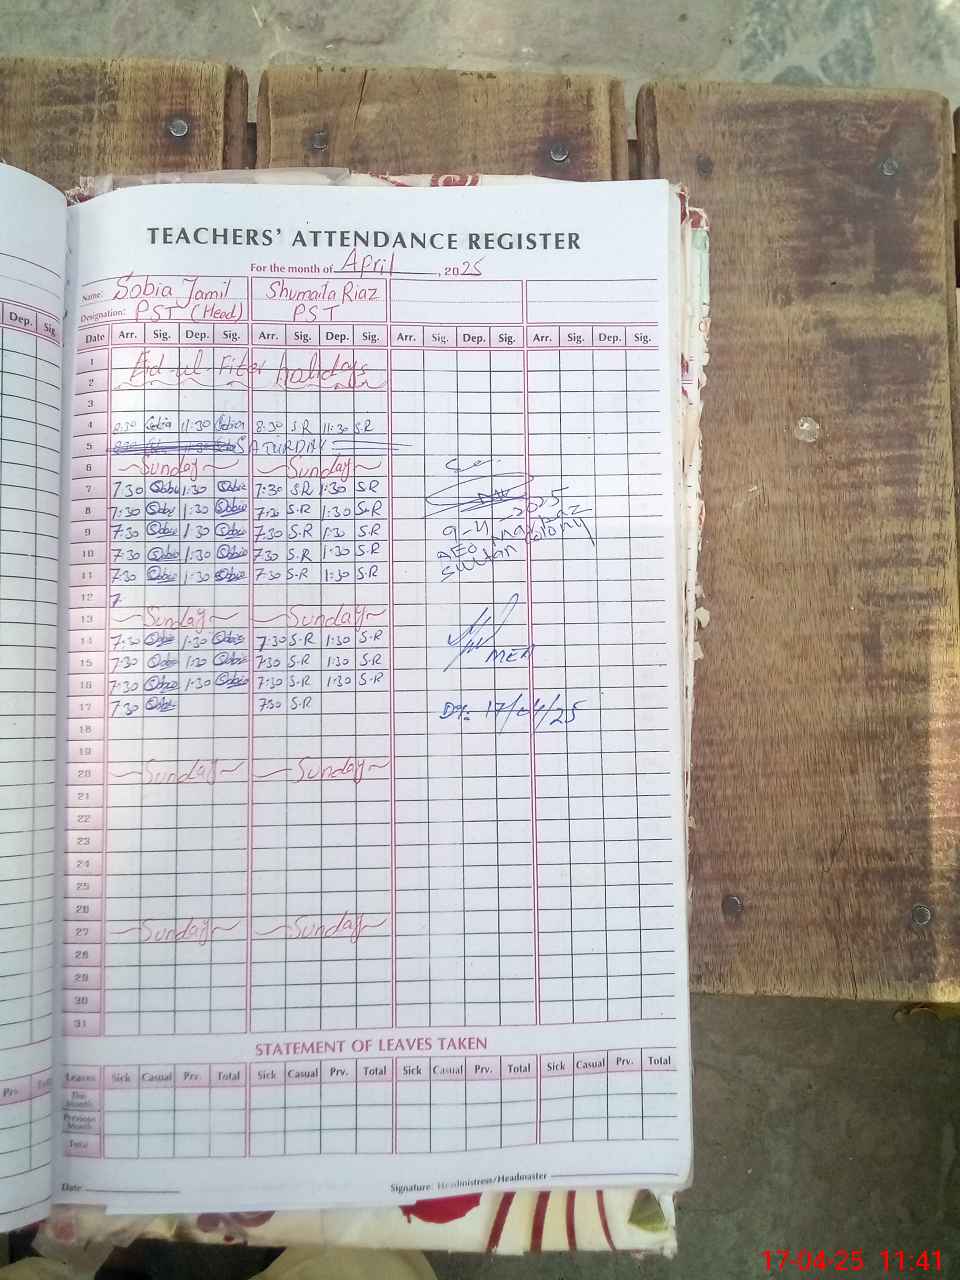 TEACHERS' ATTENDANCE REGISTER
For the month of April, 2025
Name: Sobia Jamil Shumaila Riaz
Designation: PST (Head) PST
Dep. Sig.
Date Arr. Sig. Dep. Sig. Arr. Sig. Dep. Sig. Arr. Sig. Dep. Sig. Arr. Sig. Dep. Sig.
1 Eid-ul-Fiter holidays
2
3
4 8:30 Sobia 11:30 Sobia 8:30 S.R 11:30 S.R
5 SATURDAY
6 Sunday Sunday
7 7:30 Sobia 1:30 Sobia 7:30 S.R 1:30 S.R
8 7:30 Sobia 1:30 Sobia 7:30 S.R 1:30 S.R
9 7:30 Sobia 1:30 Sobia 7:30 S.R 1:30 S.R
9-4-2025
10 7:30 Sobia 1:30 Sobia 7:30 S.R 1:30 S.R
AEO
11 7:30 Sobia 1:30 Sobia 7:30 S.R 1:30 S.R
Sultan Colony
12 7
13 Sunday Sunday
14 7:30 Sobia 1:30 Sobia 7:30 S.R 1:30 S.R
15 7:30 Sobia 1:30 Sobia 7:30 S.R 1:30 S.R
MEA
16 7:30 Sobia 1:30 Sobia 7:30 S.R 1:30 S.R
17 7:30 Sobia 7:30 S.R
Dt: 17/04/25
18
19
20 Sunday Sunday
21
22
23
24
25
26
27 Sunday Sunday
28
29
30
31
STATEMENT OF LEAVES TAKEN
Leaves Sick Casual Prv. Total Sick Casual Prv. Total Sick Casual Prv. Total Sick Casual Prv. Total
This Month
Previous Month
Total
Date Signature: Headmistress/Headmaster
17-04-25 11:41